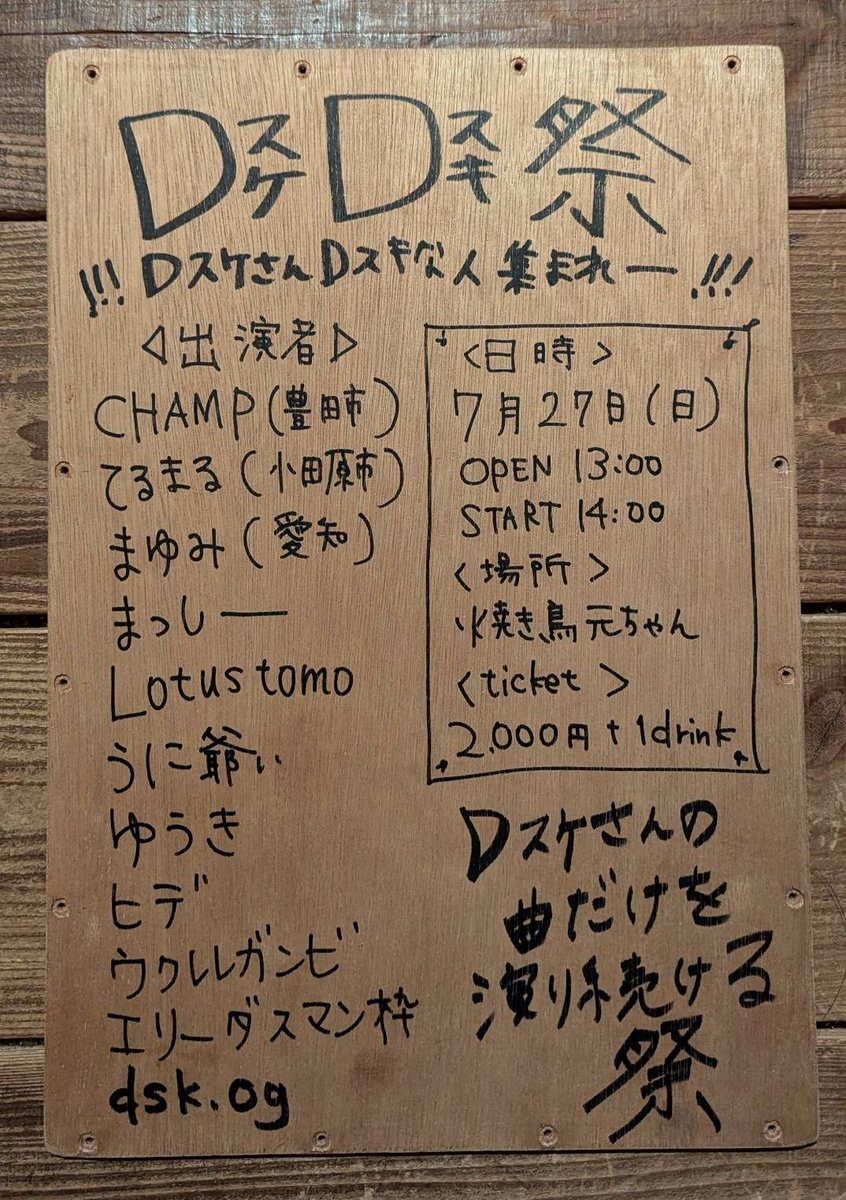 DスケDスキ祭
!!!DスケさんDスキな人集まれー!!!
◁出演者▷
CHAMP(豊田市)
てるまる(小田原市)
まゆみ(愛知)
まっしー
Lotus tomo
うに爺ぃ
ゆうき
ヒデ
ウクレレガンビ
エリーダスマン枠
dsk.og
<日時>
7月27日(日)
OPEN 13:00
START 14:00
<場所>
焼き鳥元ちゃん
<ticket>
2.000円+1drink
Dスケさんの
曲だけを
演り続ける
祭